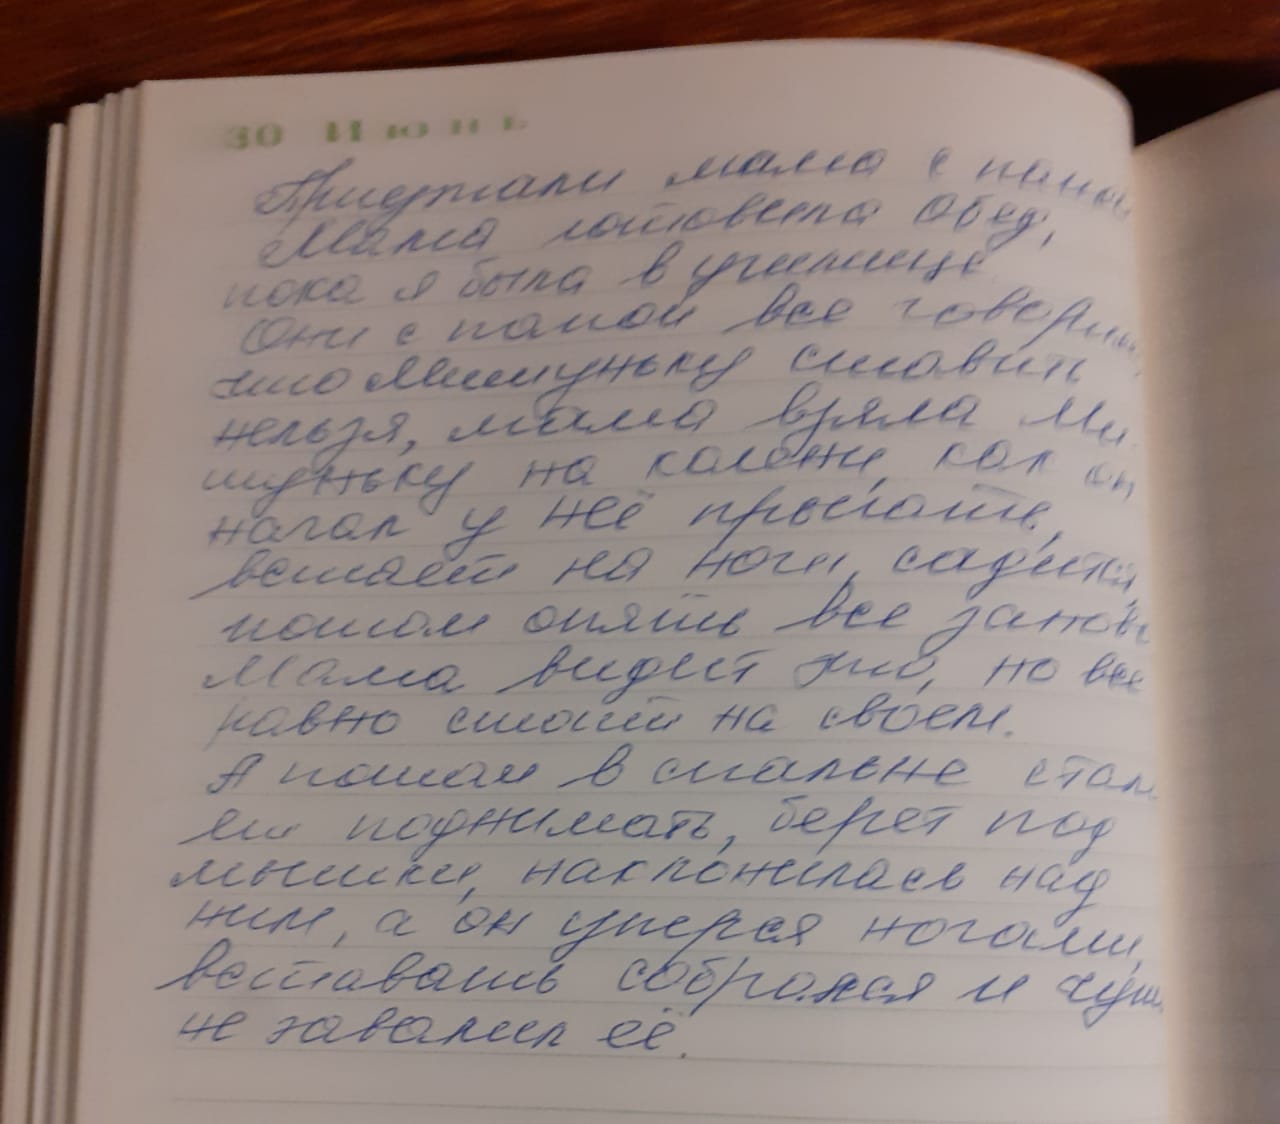 30 Июнь
Приезжали мама с папой
Мама готовила обед,
пока я была в училище
Они с папой все говорили,
что Мишуньку ставить
нельзя, мама взяла Ми-
шуньку на колени, как он
начал у неё прыгать,
встает на ноги, садится,
потом опять все занов
Мама видит это, но все
равно стоит на своем.
А потом в спальне стал
его поднимать, берет под
мышки, наклонилась над
ним, а он уперся ногами,
вставать собрался и чуть
не завалил её.